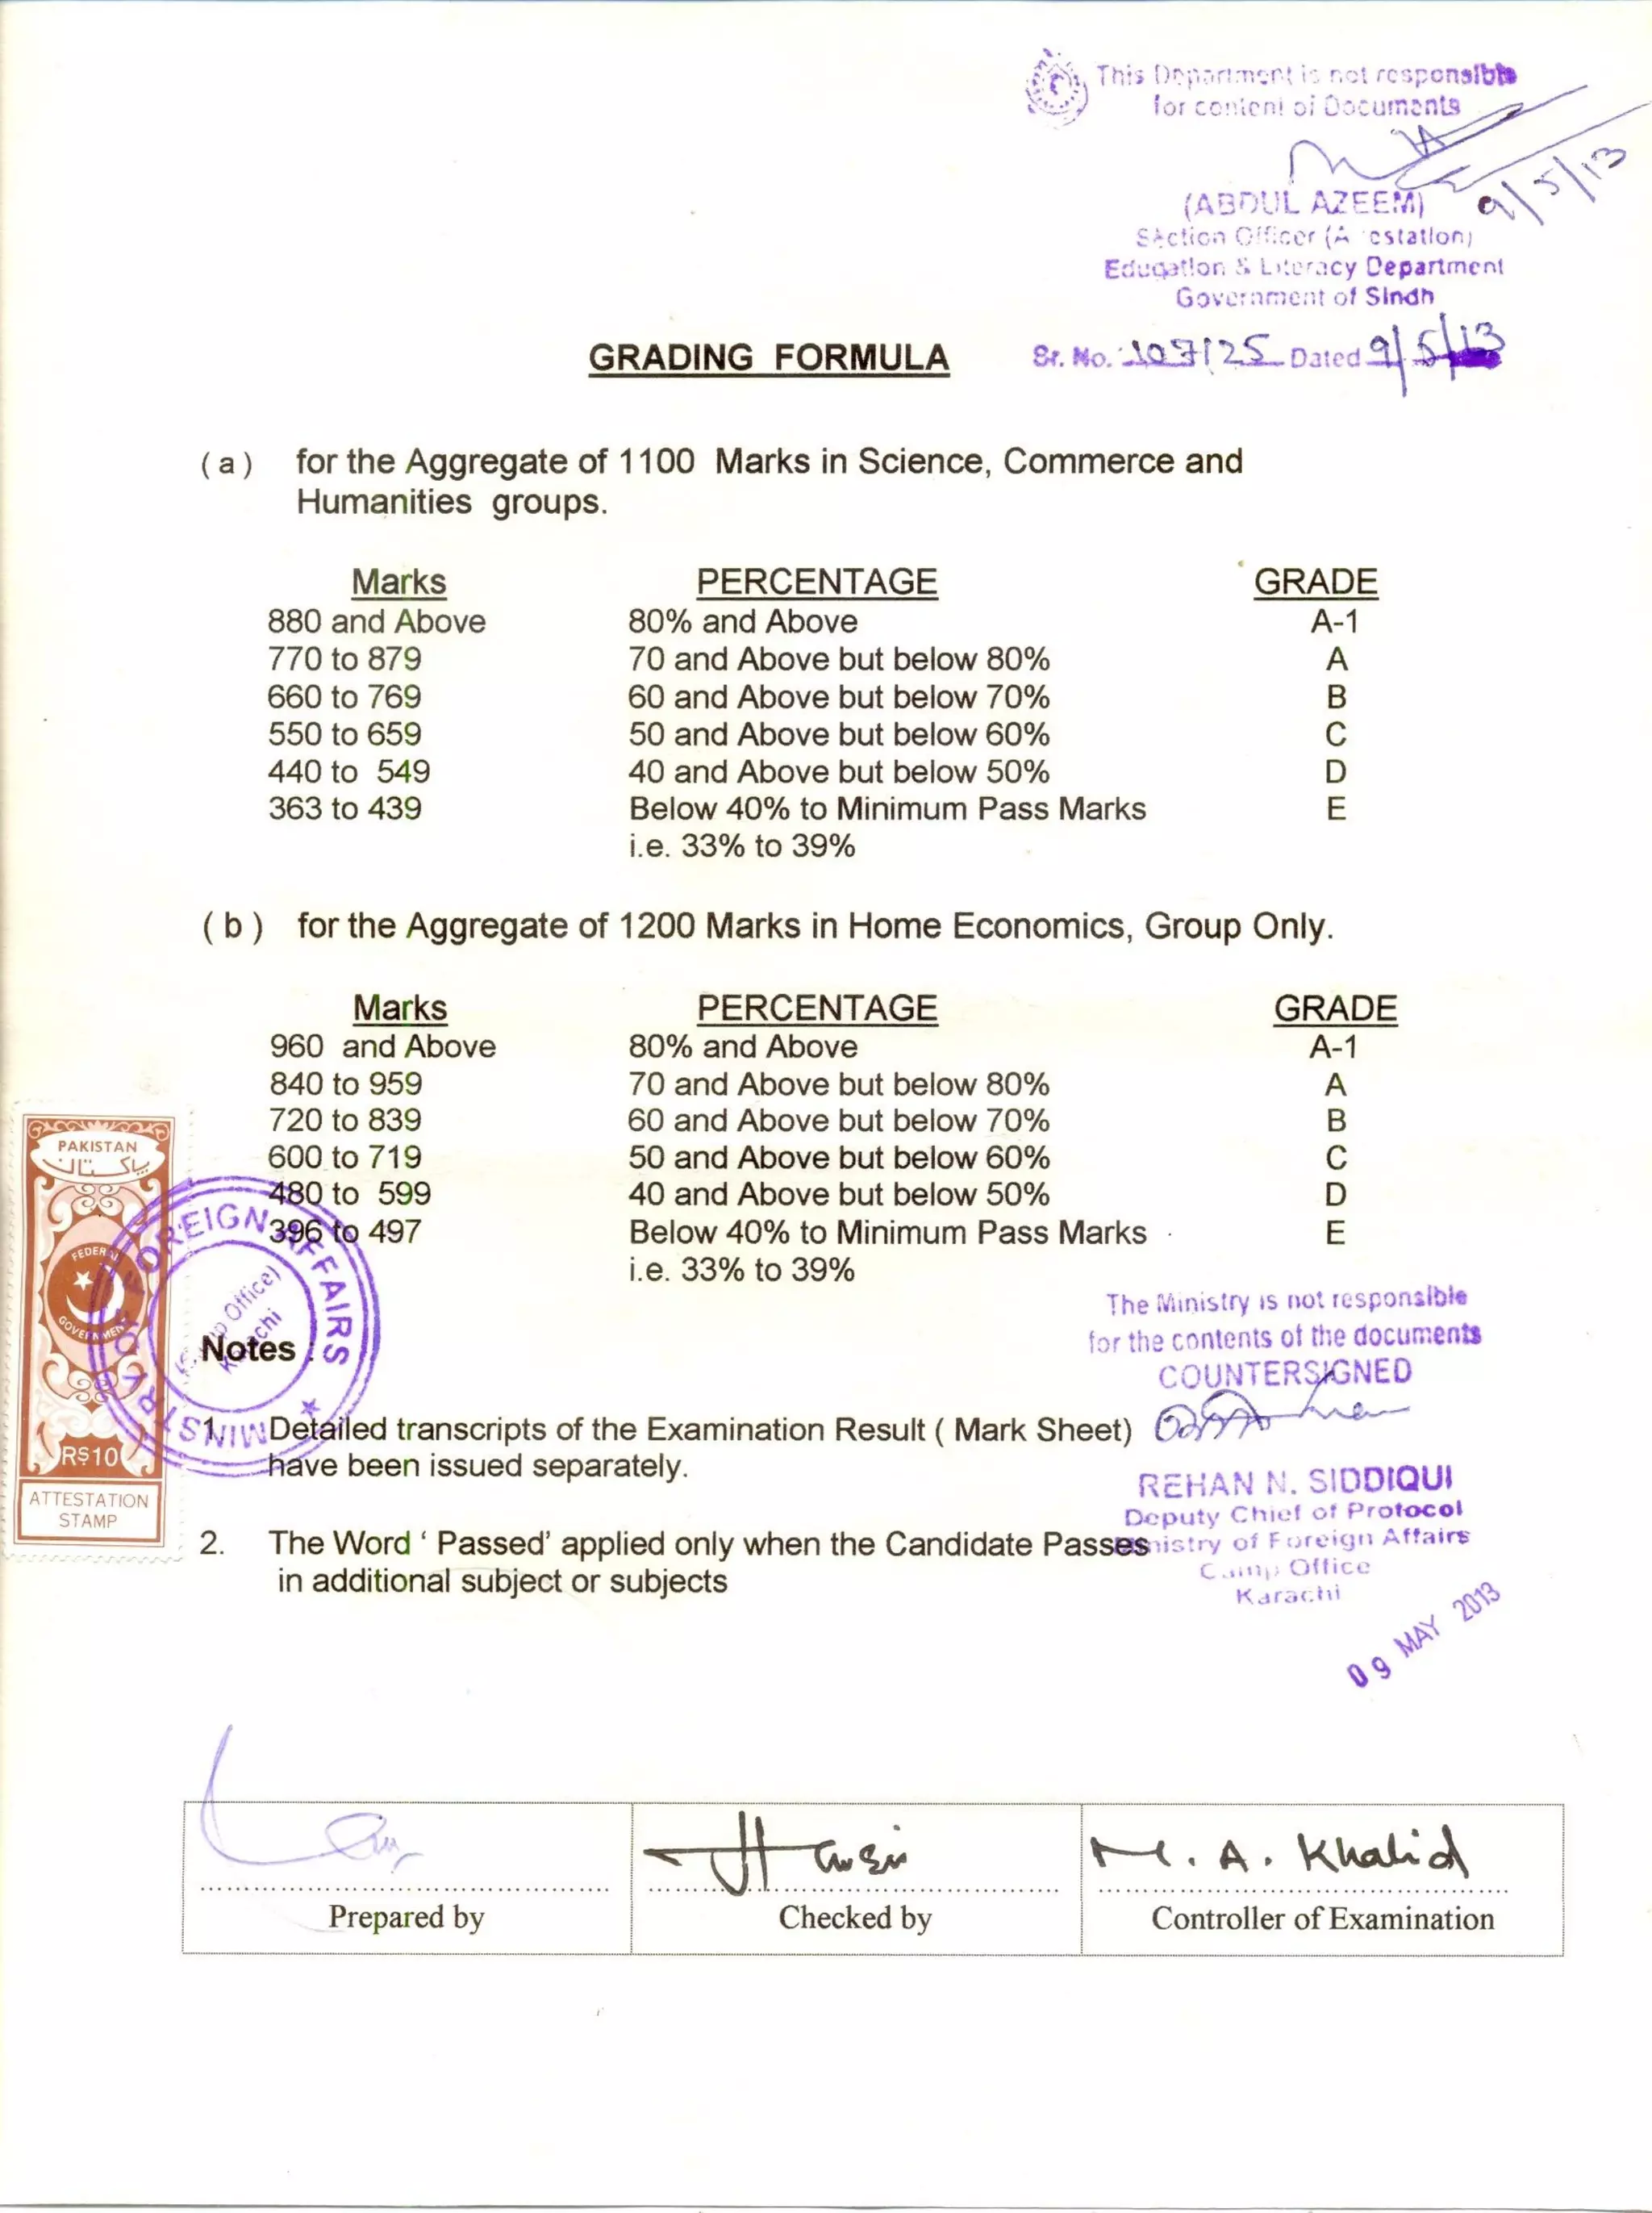 This Department is not responsible
for content of Documents
9/5/13
(ABDUL AZEEM)
Section Officer (A estation)
Education & Literacy Department
Government of Sindh
GRADING FORMULA
Sr. No. 107125 Dated 9/5/13
(a) for the Aggregate of 1100 Marks in Science, Commerce and
Humanities groups.
Marks PERCENTAGE GRADE
880 and Above 80% and Above A-1
770 to 879 70 and Above but below 80% A
660 to 769 60 and Above but below 70% B
550 to 659 50 and Above but below 60% C
440 to 549 40 and Above but below 50% D
363 to 439 Below 40% to Minimum Pass Marks E
i.e. 33% to 39%
(b) for the Aggregate of 1200 Marks in Home Economics, Group Only.
Marks PERCENTAGE GRADE
960 and Above 80% and Above A-1
840 to 959 70 and Above but below 80% A
720 to 839 60 and Above but below 70% B
600 to 719 50 and Above but below 60% C
480 to 599 40 and Above but below 50% D
396 to 497 Below 40% to Minimum Pass Marks E
i.e. 33% to 39%
PAKISTAN
پاکستان
FEDERAL
GOVERNMENT
RS10
ATTESTATION
STAMP
MINISTRY OF FOREIGN AFFAIRS
Office)
Karachi
Notes :
1. Detailed transcripts of the Examination Result ( Mark Sheet)
have been issued separately.
2. The Word ‘ Passed’ applied only when the Candidate Passes
in additional subject or subjects
The Ministry is not responsible
for the contents of the documents
COUNTERSIGNED
REHAN N. SIDDIQUI
Deputy Chief of Protocol
Ministry of Foreign Affairs
Camp Office
Karachi
09 MAY 2013
M. A. Khalid
Prepared by Checked by Controller of Examination